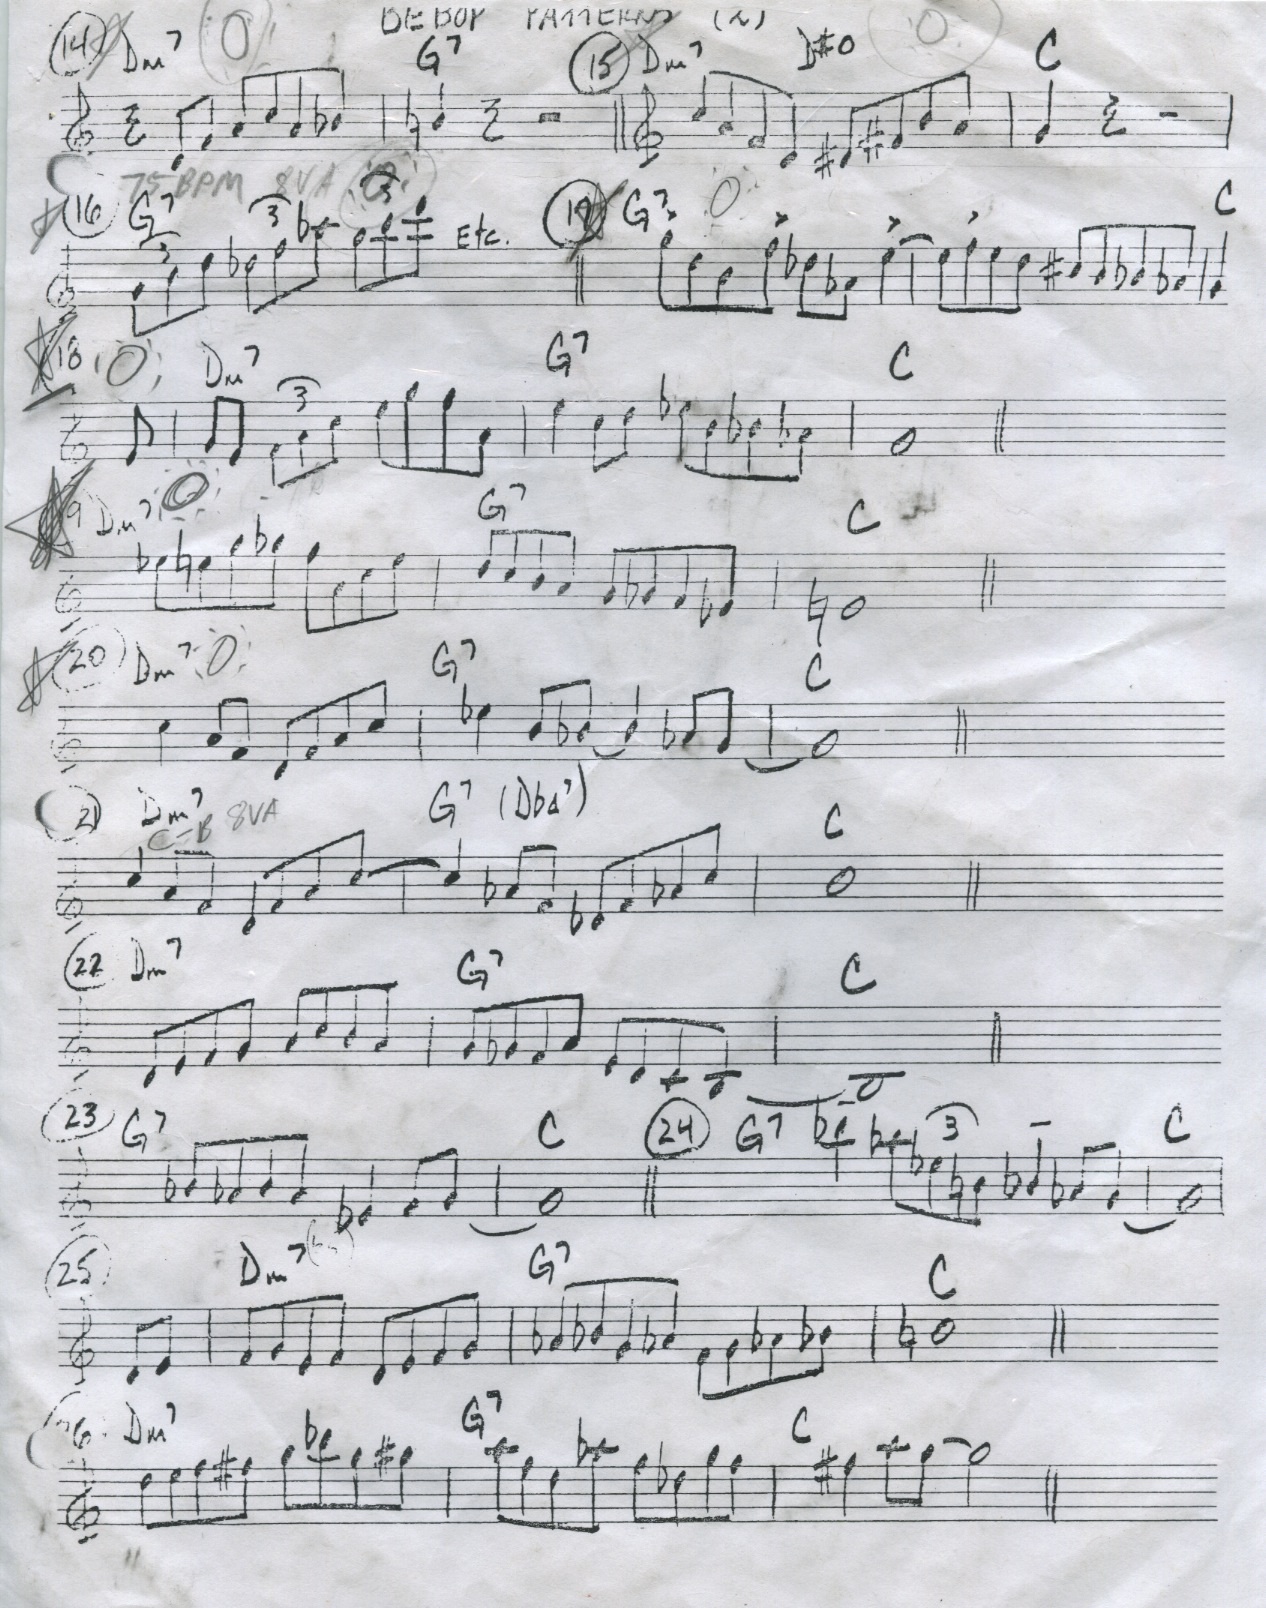 BEBOP PATTERNS (2)
14 Dm7 G7 15 Dm7 D#o C
75 BPM 8VA
16 G7 3 3 3 Etc. 17 G7 C
18 Dm7 3 G7 C
9 Dm7 G7 C
20 Dm7 G7 C
21 Dm7 G7 C
C-B 8VA
22 Dm7 G7 C
23 G7 C 24 G7 3 C
25 Dm7 G7 C
6 Dm7 G7 C